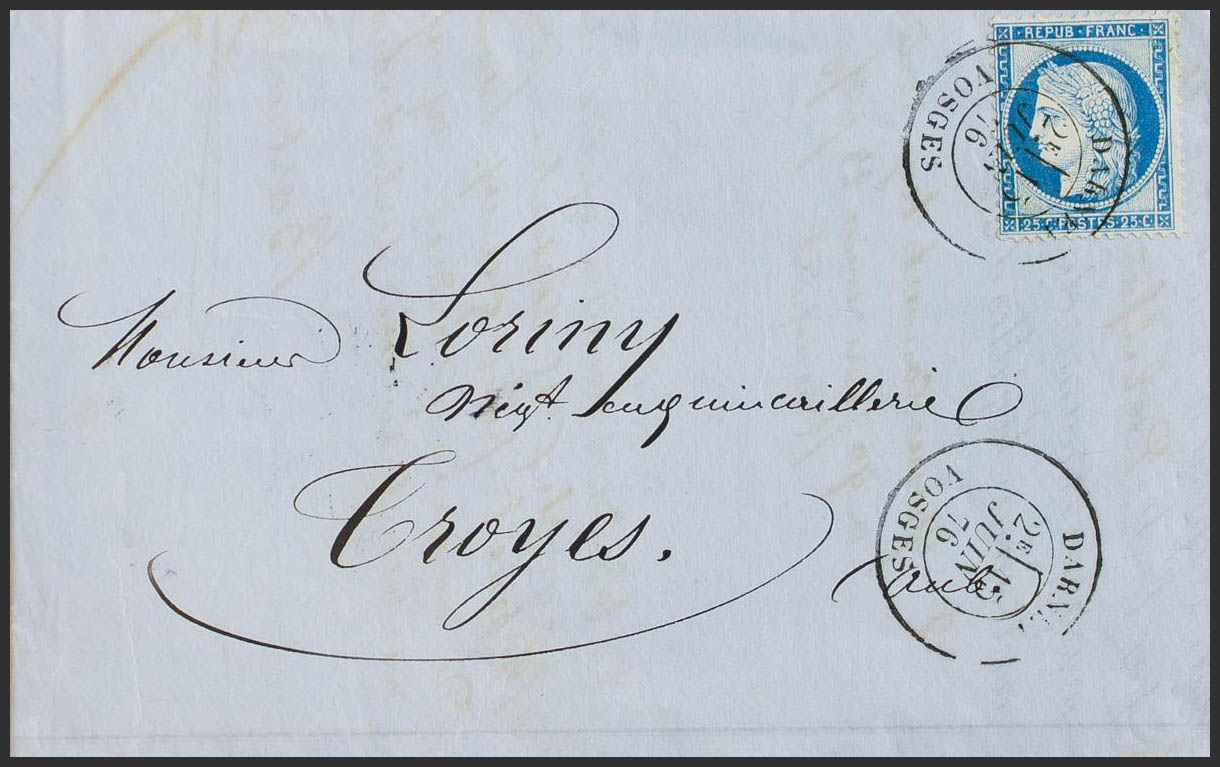 REPUB·FRANC·
25·C·POSTES·25·C·
VOSGES
2E
76
Monsieur Loriny
Négt. en quincaillerie
Troyes.
Aube.
DARNEY
VOSGES
2E
JUIN
76